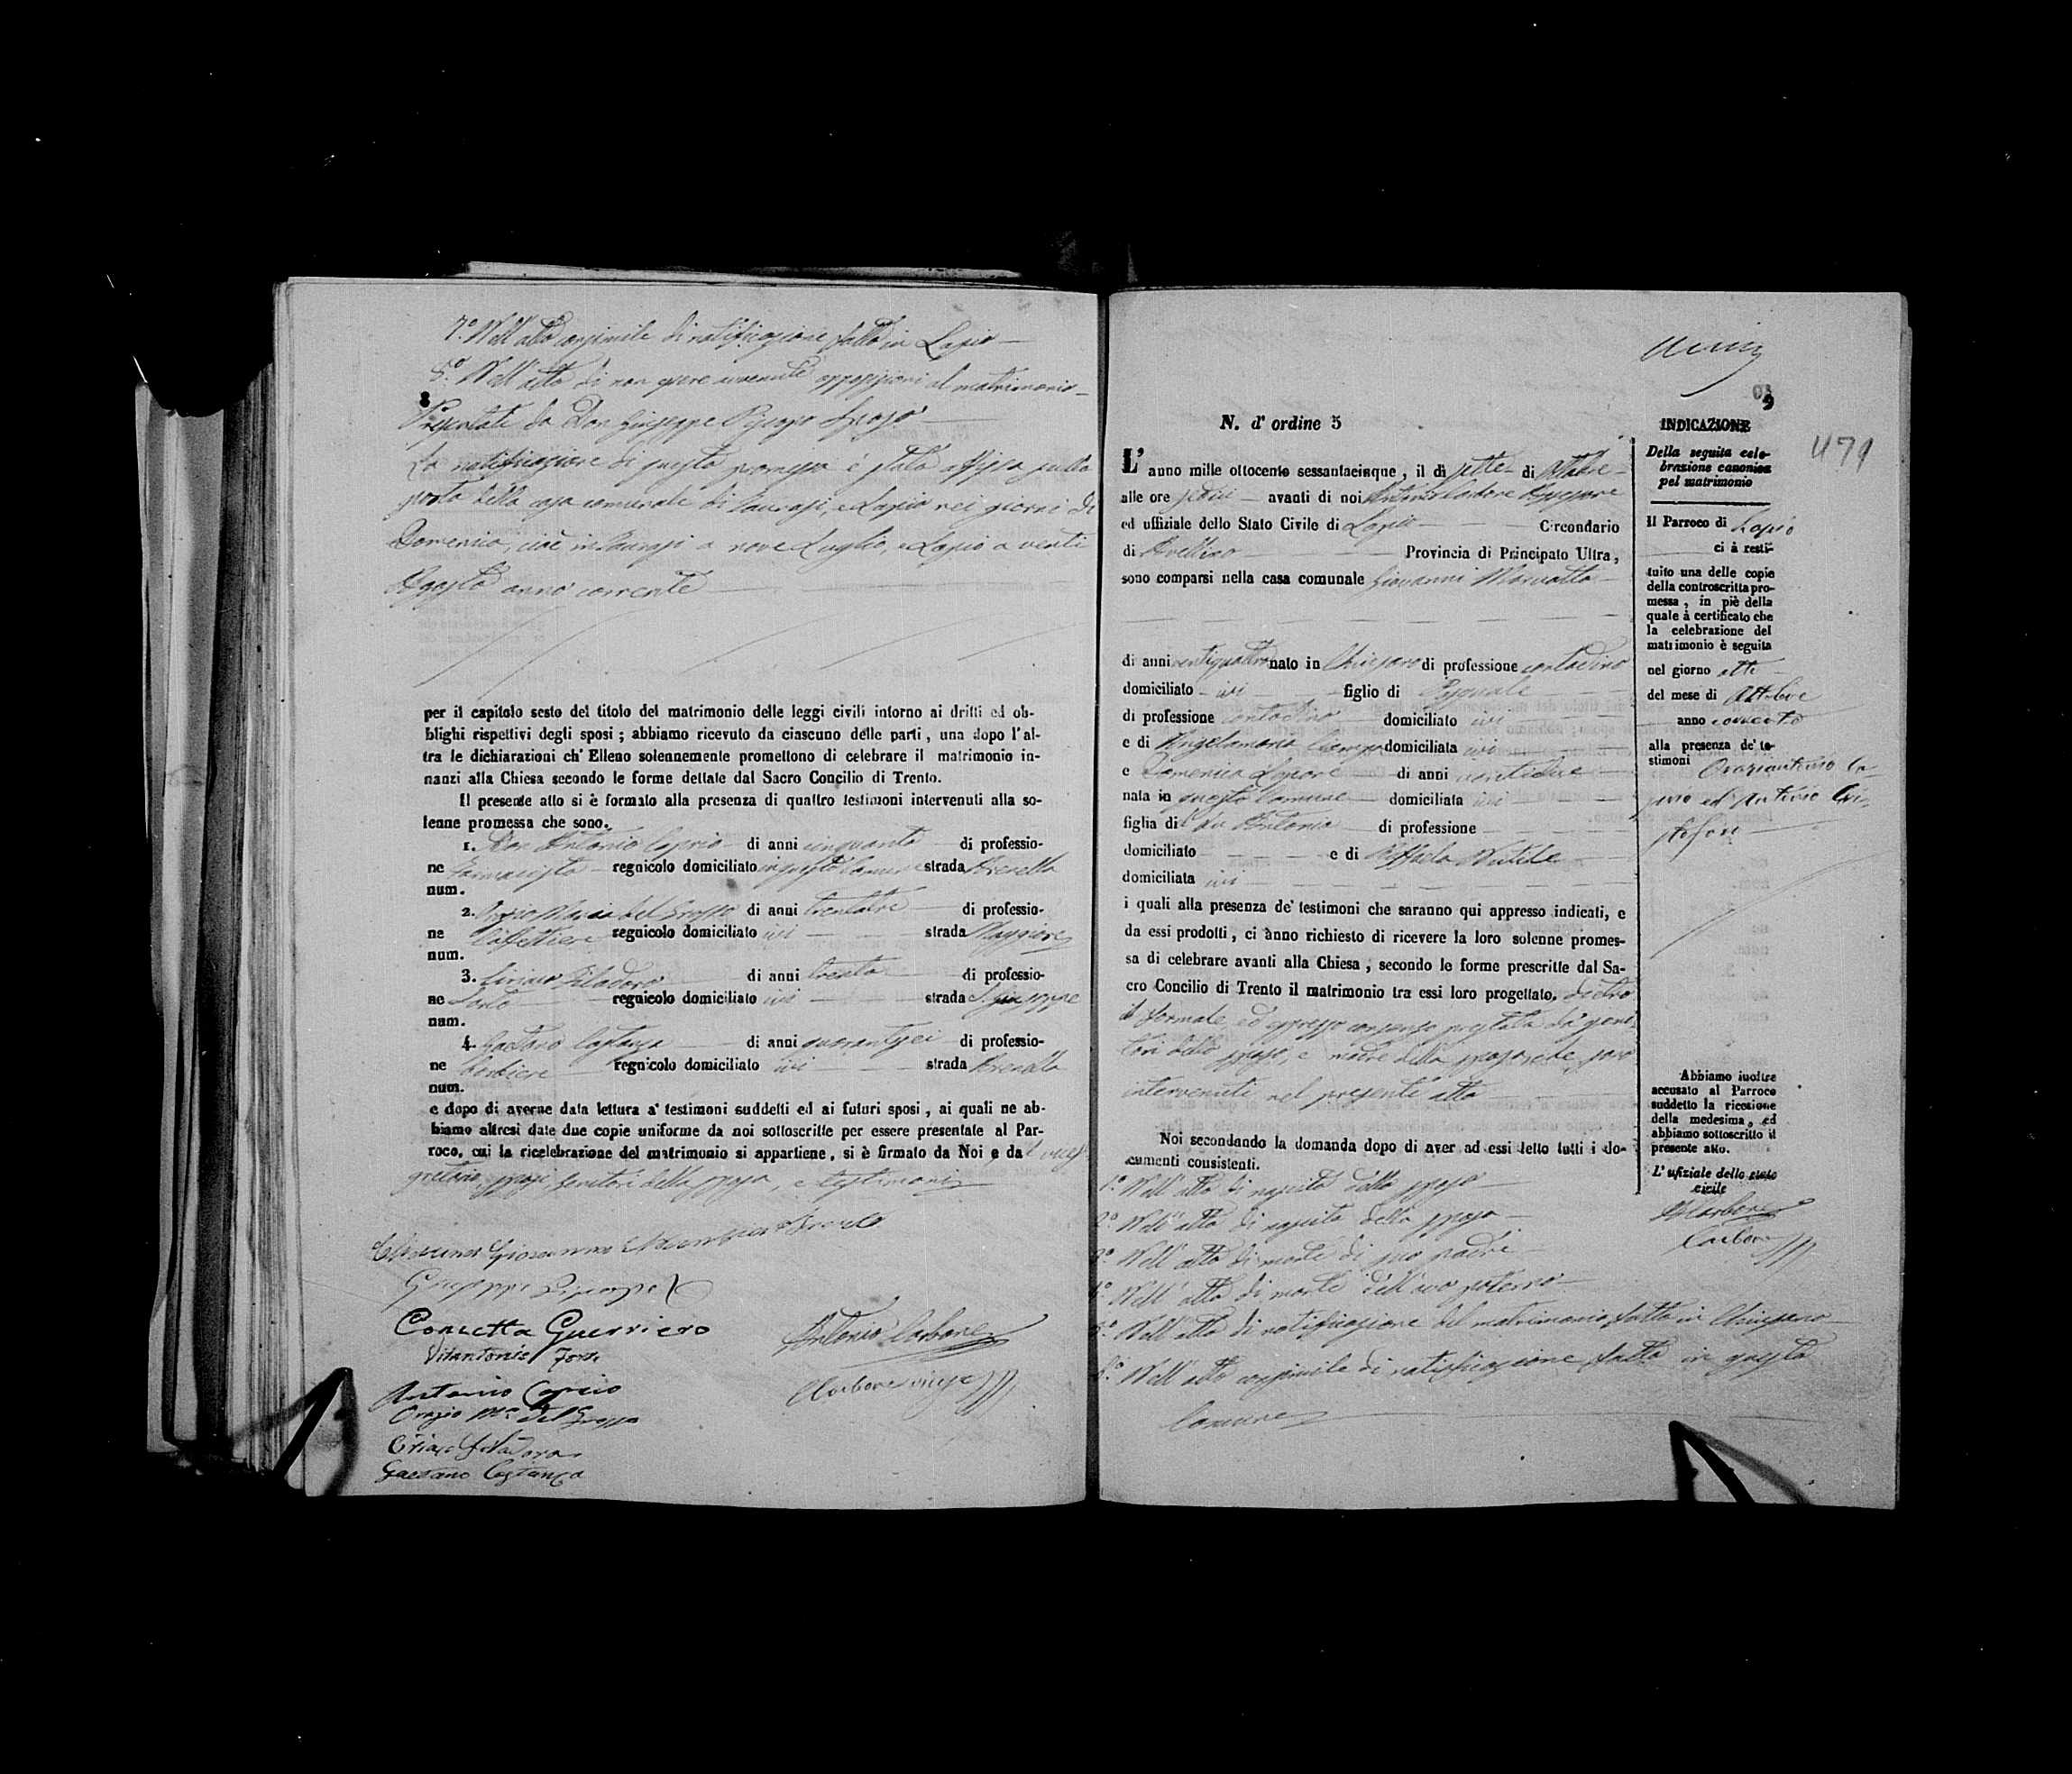 7.° Nell'atto consimile di notificazione fatto in Lapio
8.° Nell'atto di non essere avvenute opposizioni al matrimonio
8
Presentati da Don Giuseppe sposo
La notificazione di questa promessa è stata affissa sulla
porta della casa comunale di Taurasi, e Lapio nei giorni di
Domenica, cioè in Taurasi a nove Luglio, e Lapio a venti
Agosto anno corrente
per il capitolo sesto del titolo del matrimonio delle leggi civili intorno ai dritti ed ob-
blighi rispettivi degli sposi ; abbiamo ricevuto da ciascuno delle parti , una dopo l'al-
tra le dichiarazioni ch' Elleno solennemente promettono di celebrare il matrimonio in-
nanzi alla Chiesa secondo le forme dettate dal Sacro Concilio di Trento.
Il presente atto si è formato alla presenza di quattro testimoni intervenuti alla so-
lenne promessa che sono.
1. Don Antonio Caprio di anni cinquanta di professio-
ne Farmacista regnicolo domiciliato in questo Comune strada
num.
2. Orazio Maria del Grosso di anni trentatre di professio-
ne Caffettiere regnicolo domiciliato ivi strada Maggiore
num.
3. Ciriaco Filadoro di anni trenta di professio-
ne Sarto regnicolo domiciliato ivi strada S. Giuseppe
num.
4. Gaetano Costanza di anni quarantasei di professio-
ne barbiere regnicolo domiciliato ivi strada
num.
e dopo di averne data lettura a' testimoni suddetti ed ai futuri sposi , ai quali ne ab-
biamo altresì date due copie uniforme da noi sottoscritte per essere presentate al Par-
roco, cui la ricelebrazione del matrimonio si appartiene , si è firmato da Noi e dal vicese
gretario, sposi, genitori della sposa, e testimoni
Giovanna
Giuseppe
Concetta Guerriero
Vitantonio Forte
Antonio Carbone
Antonio Caprio
Carbone
Orazio Ma. del Grosso
Ciriaco Filadoro
Gaetano Costanza
9
479
N. d' ordine 5
L' anno mille ottocento sessantacinque , il dì sette di Ottobre
alle ore sedici avanti di noi Antonio Carbone Assessore
ed uffiziale dello Stato Civile di Lapio Circondario
di Avellino Provincia di Principato Ultra,
sono comparsi nella casa comunale Giovanni
di anni ventiquattro nato in Chiusano di professione contadino
domiciliato ivi figlio di Pasquale
di professione contadino domiciliato ivi
e di Angelamaria domiciliata ivi
e Domenica Lepore di anni ventidue
nata in questo Comune domiciliata ivi
figlia di fu Antonio di professione
domiciliato e di Raffaela Nutile
domiciliata ivi
i quali alla presenza de' testimoni che saranno qui appresso indicati, e
da essi prodotti , ci ànno richiesto di ricevere la loro solenne promes-
sa di celebrare avanti alla Chiesa , secondo le forme prescritte dal Sa-
cro Concilio di Trento il matrimonio tra essi loro progettato, dietro
il formale, ed espresso consenso prestato da' geni
tori dello sposo, e madre della sposa, che sono
intervenuti nel presente atto
Noi secondando la domanda dopo di aver ad essi letto tutti i do-
cumenti consistenti.
1.° Nell'atto di nascita dello sposo
2.° Nell'atto di nascita della sposa
3.° Nell'atto di morte di suo padre
4.° Nell'atto di morte dell'avo paterno
5.° Nell'atto di notificazione del matrimonio fatta in Chiusano
6.° Nell'atto consimile di notificazione fatta in questo
Comune
INDICAZIONE
Della seguita cele-
brazione canonica
pel matrimonio
Il Parroco di Lapio
ci à resti-
tuito una delle copie
della controscritta pro-
messa , in piè della
quale à certificato che
la celebrazione del
matrimonio è seguita
nel giorno otto
del mese di Ottobre
anno corrente
alla presenza de' te-
stimoni Oraziantonio Ca-
ed Antonio
Abbiamo inoltre
accusato al Parroco
suddetto la ricezione
della medesima, ed
abbiamo sottoscritto il
presente atto.
L' ufiziale dello stato
civile
A Carbone
Carbone